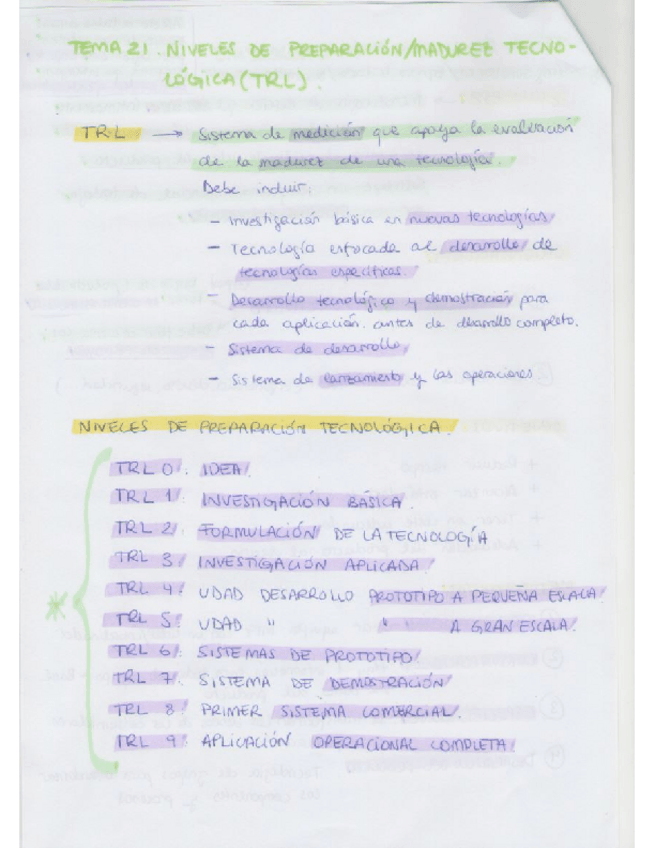 TEMA 21. NIVELES DE PREPARACIÓN/MADUREZ TECNO-
LÓGICA (TRL).
TRL → Sistema de medición que apoya la evaluación
de la madurez de una tecnología.
Debe incluir:
- Investigación básica en nuevas tecnologías
- Tecnología enfocada al desarrollo de
tecnologías específicas.
- Desarrollo tecnológico y demostración para
cada aplicación antes de desarrollo completo.
- Sistema de desarrollo
- Sistema de lanzamiento y las operaciones
NIVELES DE PREPARACIÓN TECNOLÓGICA.
TRL 0: IDEA
TRL 1: INVESTIGACIÓN BÁSICA.
TRL 2: FORMULACIÓN DE LA TECNOLOGÍA
TRL 3: INVESTIGACIÓN APLICADA.
TRL 4: UDAD DESARROLLO PROTOTIPO A PEQUEÑA ESCALA.
* TRL 5: UDAD " " " A GRAN ESCALA.
TRL 6: SISTEMAS DE PROTOTIPO
TRL 7: SISTEMA DE DEMOSTRACIÓN
TRL 8: PRIMER SISTEMA COMERCIAL.
TRL 9: APLICACIÓN OPERACIONAL COMPLETA